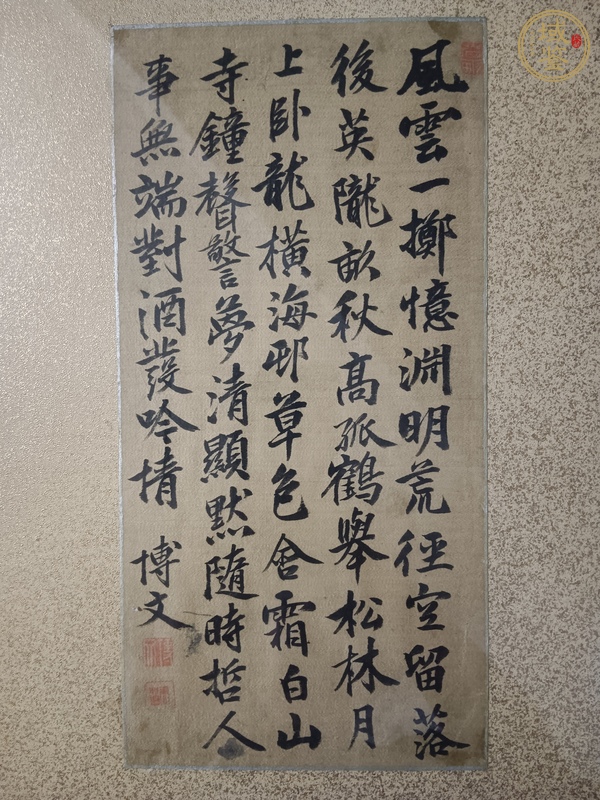 風雲一擲憶淵明荒徑空留落
後英隴畝秋高孤鶴舉松林月
上卧龍橫海邨草色含霜白山
寺鐘聲警夢清顯默隨時哲人
事無端對酒發吟情 博文